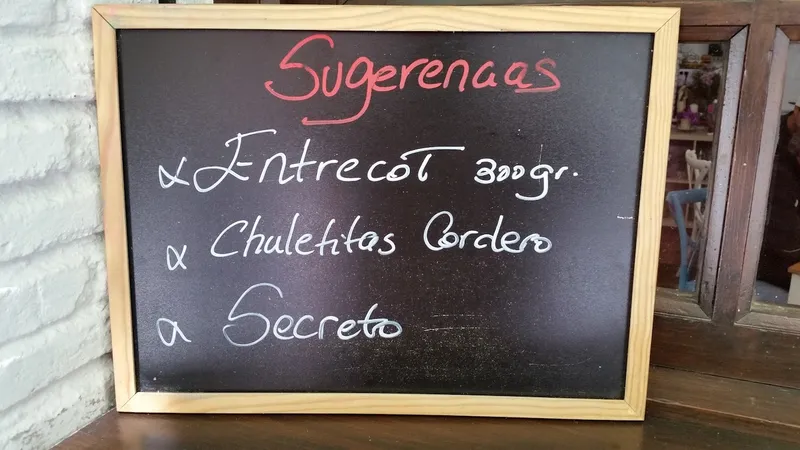 Sugerencias
Entrecót 300gr.
Chuletitas Cordero
Secreto